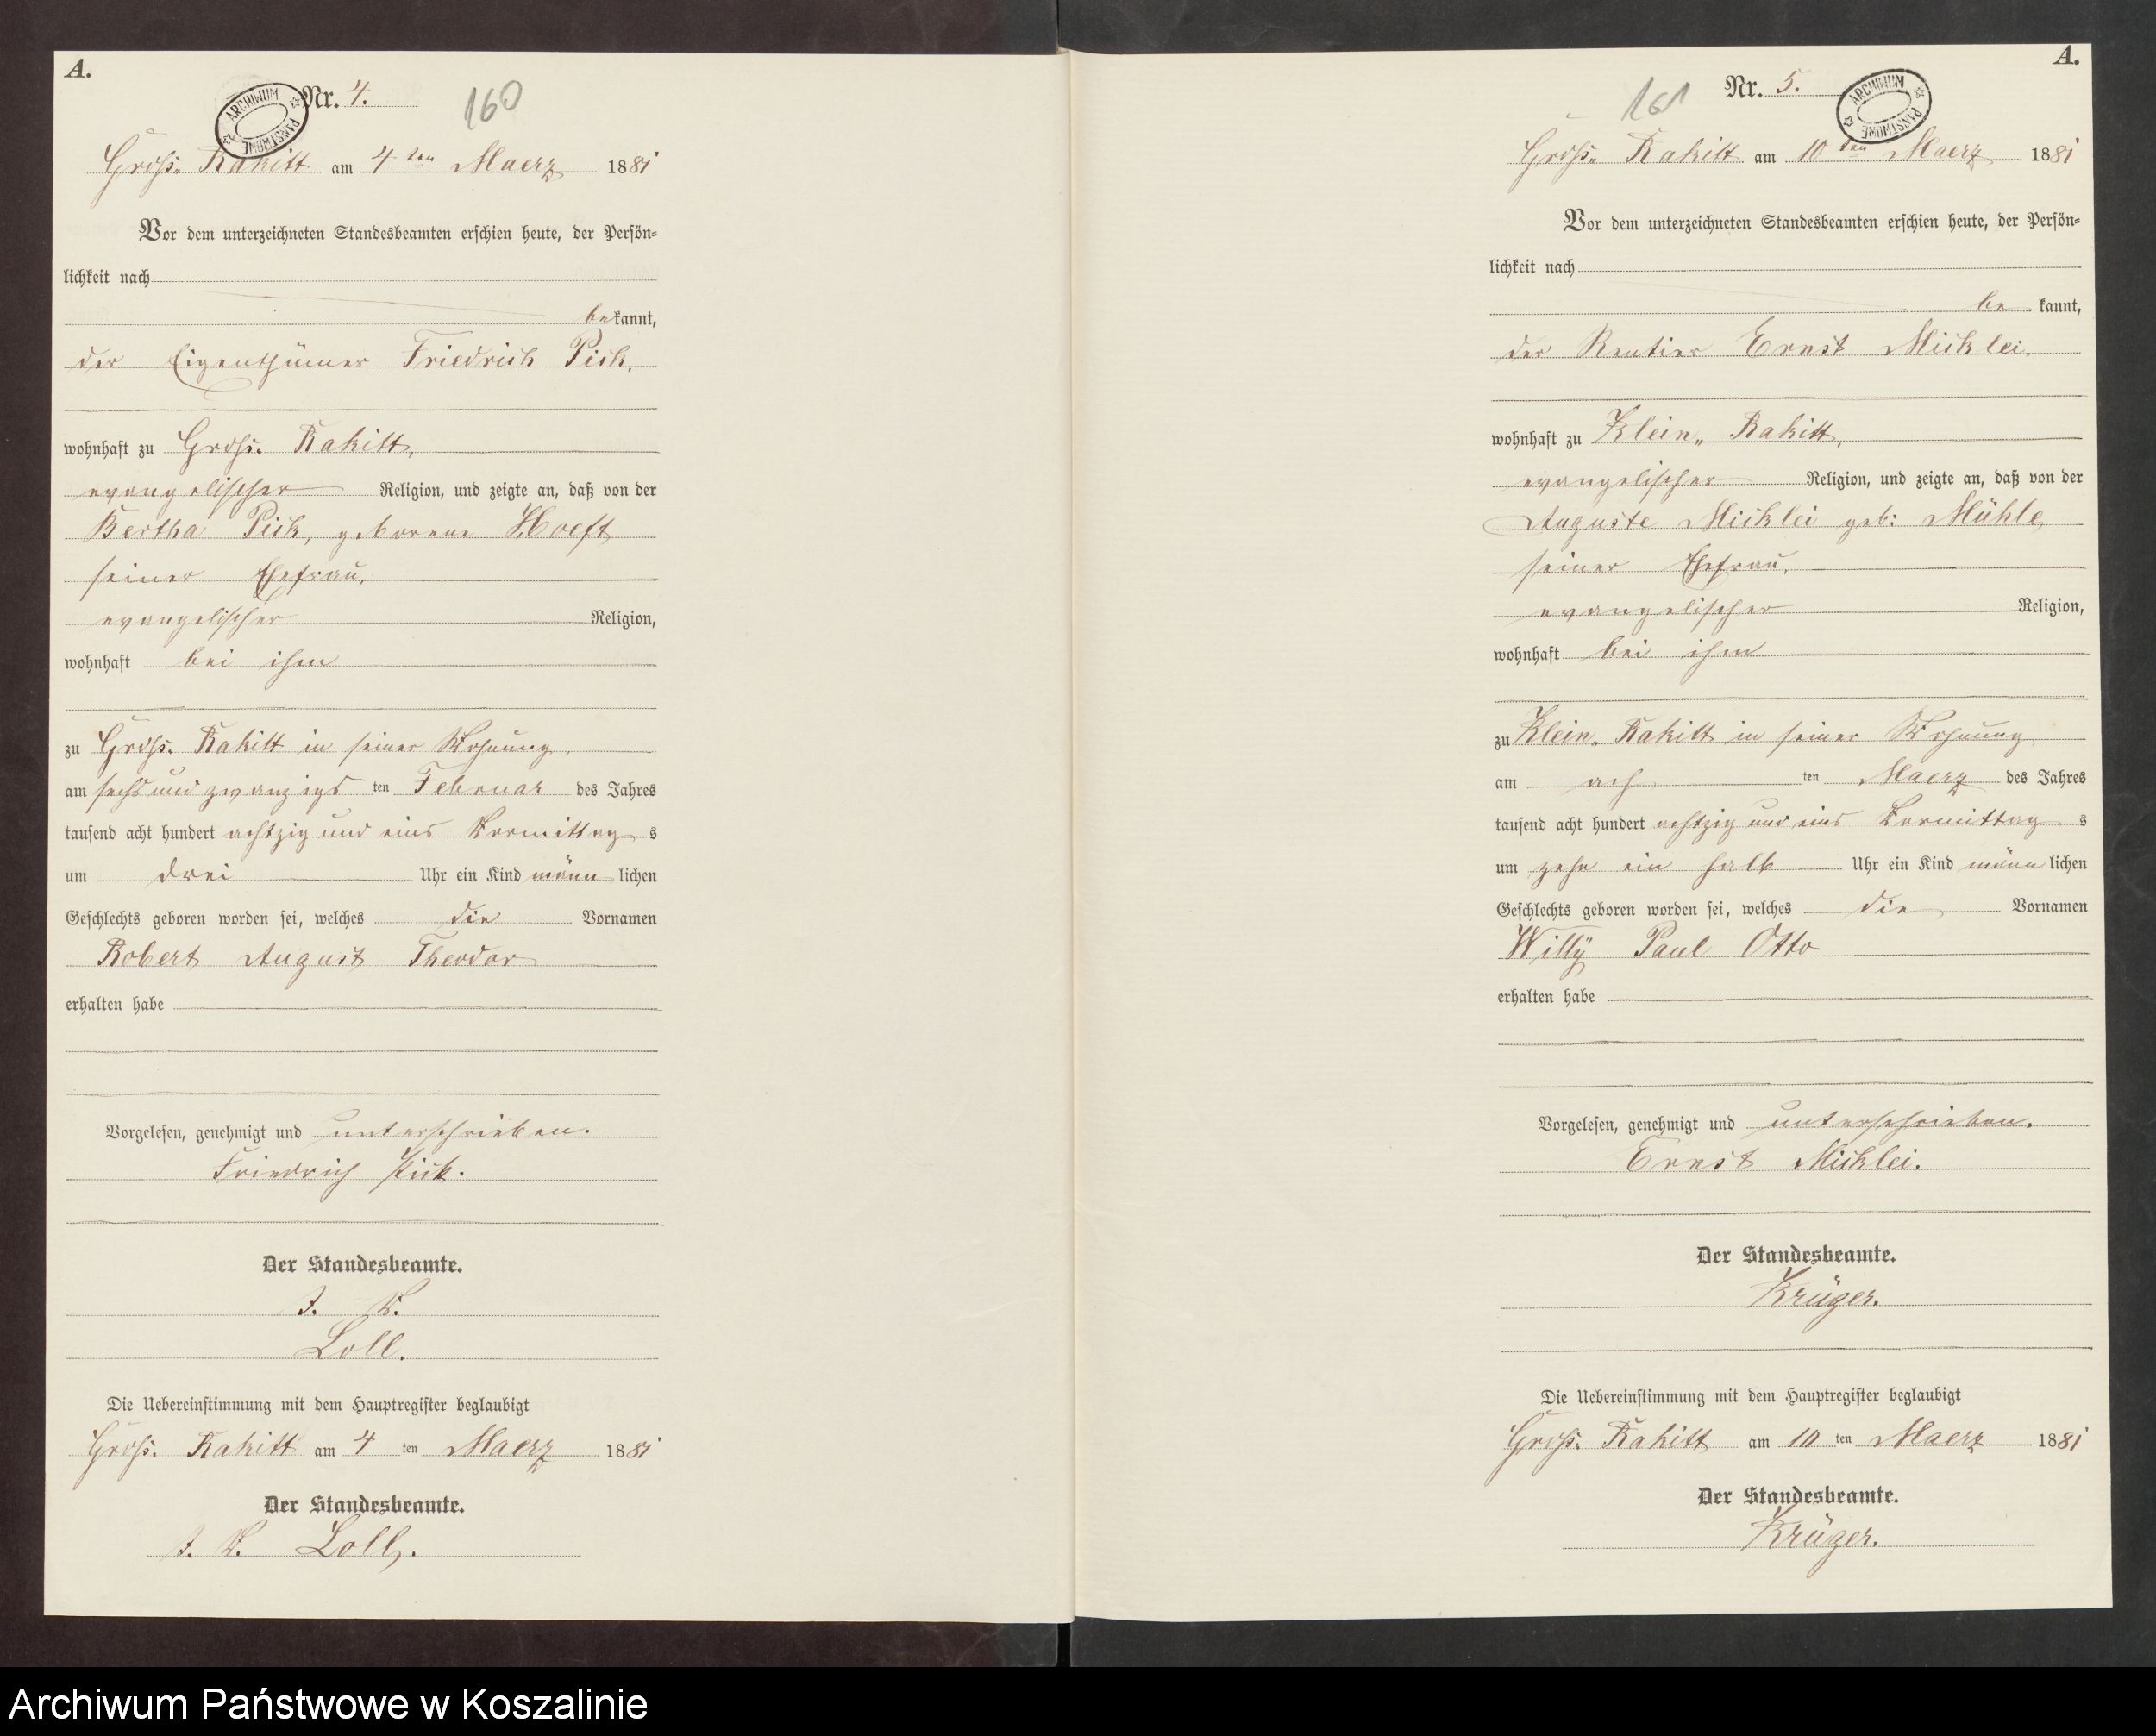 A.
Nr. 4.
160
ARCHIWUM PAŃSTWOWE
Groß. Rakitt am 4 ten Maerz 1881
Vor dem unterzeichneten Standesbeamten erschien heute, der Persön-
lichkeit nach
bekannt,
der Eigenthümer Friedrich Pick,
wohnhaft zu Groß. Rakitt,
evangelischer Religion, und zeigte an, daß von der
Bertha Pick, geborene Hoeft
seiner Ehefrau,
evangelischer Religion,
wohnhaft bei ihm
zu Groß. Rakitt in seiner Wohnung,
am sechsundzwanzigs ten Februar des Jahres
tausend acht hundert achtzig und eins Vormittag s
um drei Uhr ein Kind männ lichen
Geschlechts geboren worden sei, welches die Vornamen
Robert August Theodor
erhalten habe
Vorgelesen, genehmigt und unterschrieben.
Friedrich Pick.
Der Standesbeamte.
I. V.
Loll.
Die Uebereinstimmung mit dem Hauptregister beglaubigt
Groß. Rakitt am 4 ten Maerz 1881
Der Standesbeamte.
I. V. Loll.
A.
Nr. 5.
161
ARCHIWUM PAŃSTWOWE
Groß. Rakitt am 10 ten Maerz 1881
Vor dem unterzeichneten Standesbeamten erschien heute, der Persön-
lichkeit nach
be kannt,
der Rentier Ernst Micklei.
wohnhaft zu Klein„ Rakitt,
evangelischer Religion, und zeigte an, daß von der
Auguste Micklei geb: Mühle,
seiner Ehefrau,
evangelischer Religion,
wohnhaft bei ihm
zu Klein„ Rakitt in seiner Wohnung
am ach ten Maerz des Jahres
tausend acht hundert achtzig und eins Vormittag s
um zehn ein halb Uhr ein Kind männ lichen
Geschlechts geboren worden sei, welches die Vornamen
Willÿ Paul Otto
erhalten habe
Vorgelesen, genehmigt und unterschrieben.
Ernst Micklei.
Der Standesbeamte.
Krüger.
Die Uebereinstimmung mit dem Hauptregister beglaubigt
Groß. Rakitt am 10 ten Maerz 1881
Der Standesbeamte.
Krüger.
Archiwum Państwowe w Koszalinie